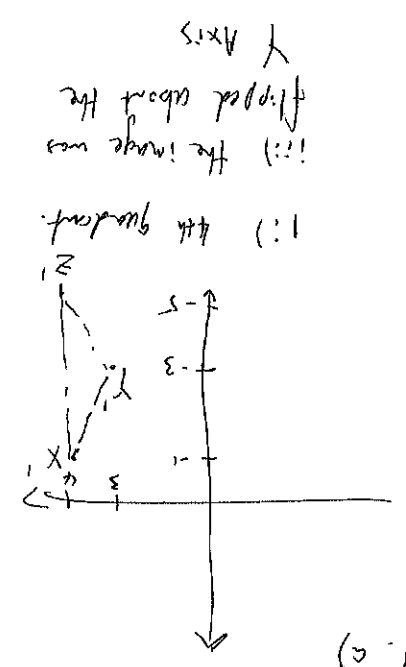 a)
4
X'
3
-1
Y'
-3
-5
Z'
i:) 4th quadant.
iii) the image was
flipped about the
Y Axis